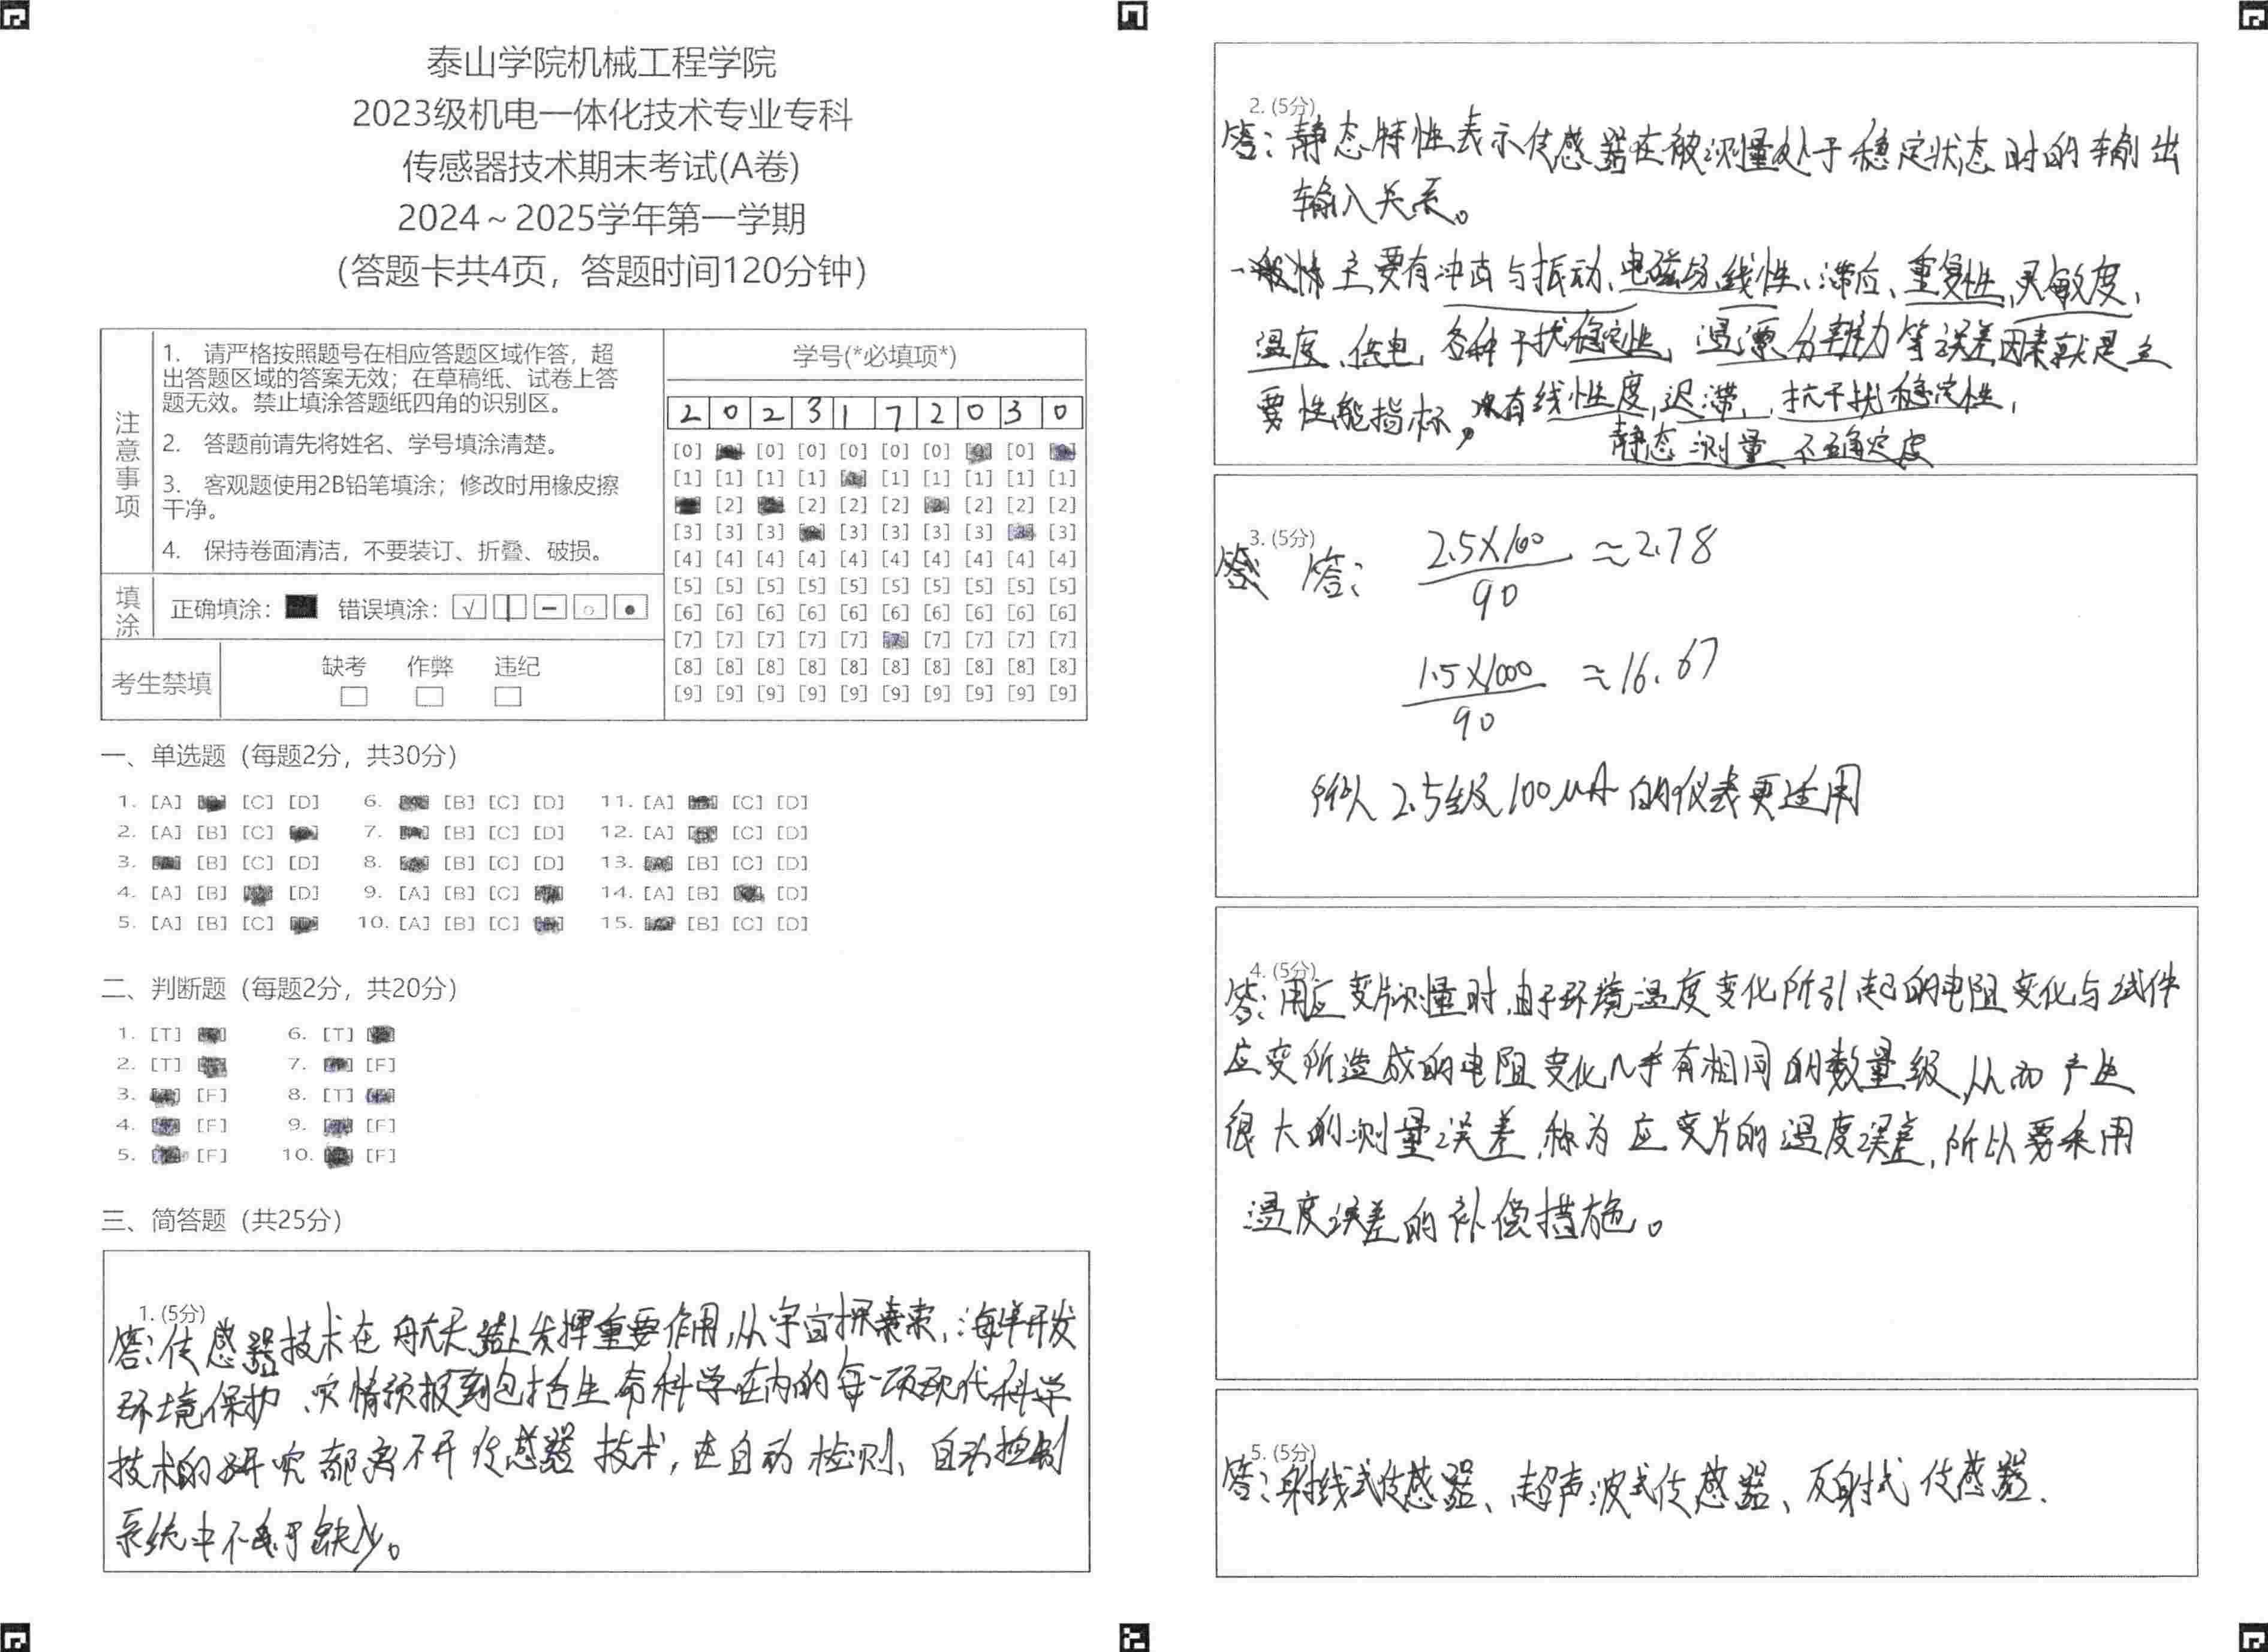 泰山学院机械工程学院
2023级机电一体化技术专业专科
传感器技术期末考试(A卷)
2024～2025学年第一学期
(答题卡共4页，答题时间120分钟)
注意事项
1. 请严格按照题号在相应答题区域作答，超
出答题区域的答案无效；在草稿纸、试卷上答
题无效。禁止填涂答题纸四角的识别区。
2. 答题前请先将姓名、学号填涂清楚。
3. 客观题使用2B铅笔填涂；修改时用橡皮擦
干净。
4. 保持卷面清洁，不要装订、折叠、破损。
填涂
正确填涂： 错误填涂：
考生禁填
缺考 作弊 违纪
学号(*必填项*)
2 0 2 3 1 7 2 0 3 0
[0] [0] [0] [0] [0] [0] [0]
[1] [1] [1] [1] [1] [1] [1] [1] [1]
[2] [2] [2] [2] [2] [2] [2]
[3] [3] [3] [3] [3] [3] [3] [3]
[4] [4] [4] [4] [4] [4] [4] [4] [4] [4]
[5] [5] [5] [5] [5] [5] [5] [5] [5] [5]
[6] [6] [6] [6] [6] [6] [6] [6] [6] [6]
[7] [7] [7] [7] [7] [7] [7] [7] [7]
[8] [8] [8] [8] [8] [8] [8] [8] [8] [8]
[9] [9] [9] [9] [9] [9] [9] [9] [9] [9]
一、单选题（每题2分，共30分）
1. [A] [C] [D] 6. [B] [C] [D] 11. [A] [C] [D]
2. [A] [B] [C] 7. [B] [C] [D] 12. [A] [C] [D]
3. [B] [C] [D] 8. [B] [C] [D] 13. [B] [C] [D]
4. [A] [B] [D] 9. [A] [B] [C] 14. [A] [B] [D]
5. [A] [B] [C] 10. [A] [B] [C] 15. [B] [C] [D]
二、判断题（每题2分，共20分）
1. [T] 6. [T]
2. [T] 7. [F]
3. [F] 8. [T]
4. [F] 9. [F]
5. [F] 10. [F]
三、简答题（共25分）
1. (5分)
答：传感器技术在航天上发挥重要作用，从宇宙探索，海洋开发
环境保护、灾情预报到包括生命科学在内的每一项现代科学
技术的研究都离不开传感器技术，在自动检测、自动控制
系统中不可缺少。
2. (5分)
答：静态特性表示传感器在被测量处于稳定状态时的输出
输入关系。
主要有冲击与振动、电磁场、线性、滞后、重复性、灵敏度，
温度、供电、各种干扰稳定性、温漂、分辨力等误差因素就是主
要性能指标，有线性度，迟滞，抗干扰稳定性，
静态测量不确定度
3. (5分)
答：2.5×100/90 ≈2.78
1.5×1000/90 ≈16.67
所以2.5级100μA的仪表更适用
4. (5分)
答：用应变片测量时，由于环境温度变化所引起的电阻变化与试件
应变所造成的电阻变化几乎有相同的数量级，从而产生
很大的测量误差，称为应变片的温度误差，所以要采用
温度误差的补偿措施。
5. (5分)
答：射线式传感器、超声波式传感器、反射式传感器．